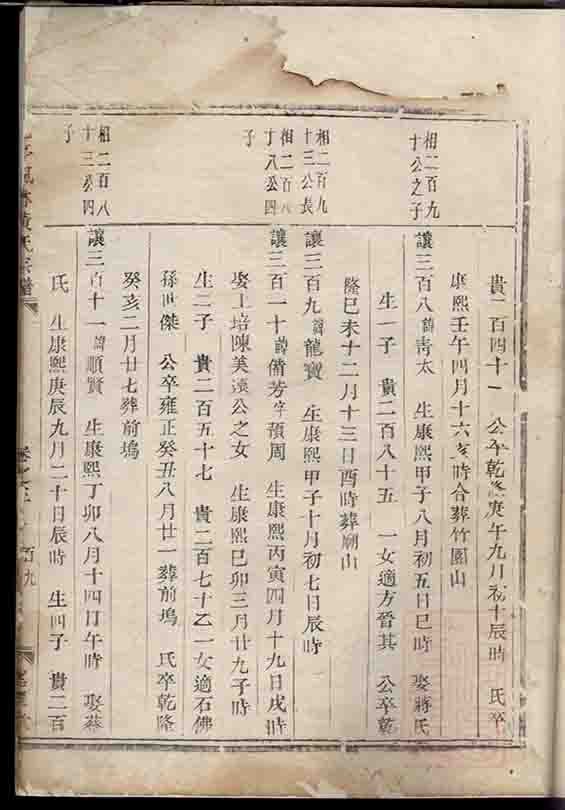 貴二百四十一 公卒乾隆庚午九月初十辰時 氏卒
康熙壬午四月十六亥時合葬竹園山
相二百九
十公之子
讓三百八諱青太 生康熙甲子八月初五日巳時 娶蔣氏
生一子 貴二百八十五 一女適方晉其 公卒乾
隆巳未十二月十三日酉時葬廟山
相二百九
十三公長
讓三百九諱龍寶 生康熙甲子十月初七日辰時
相二百八
十八公四
子
讓三百一十諱備芳字預周 生康熙丙寅四月十九日戌時
娶上培陳美遠公之女 生康熙巳卯三月廿九子時
生二子 貴二百五十七 貴二百七十乙一女適石佛
孫世傑 公卒雍正癸丑八月廿一葬前塢 氏卒乾隆
癸亥二月廿七葬前塢
相二百八
十三公四
子
讓三百十一諱順賢 生康熙丁卯八月十四日午時 娶蔡
氏 生康熙庚辰九月二十日辰時 生四子 貴二百
黃氏宗譜
百九